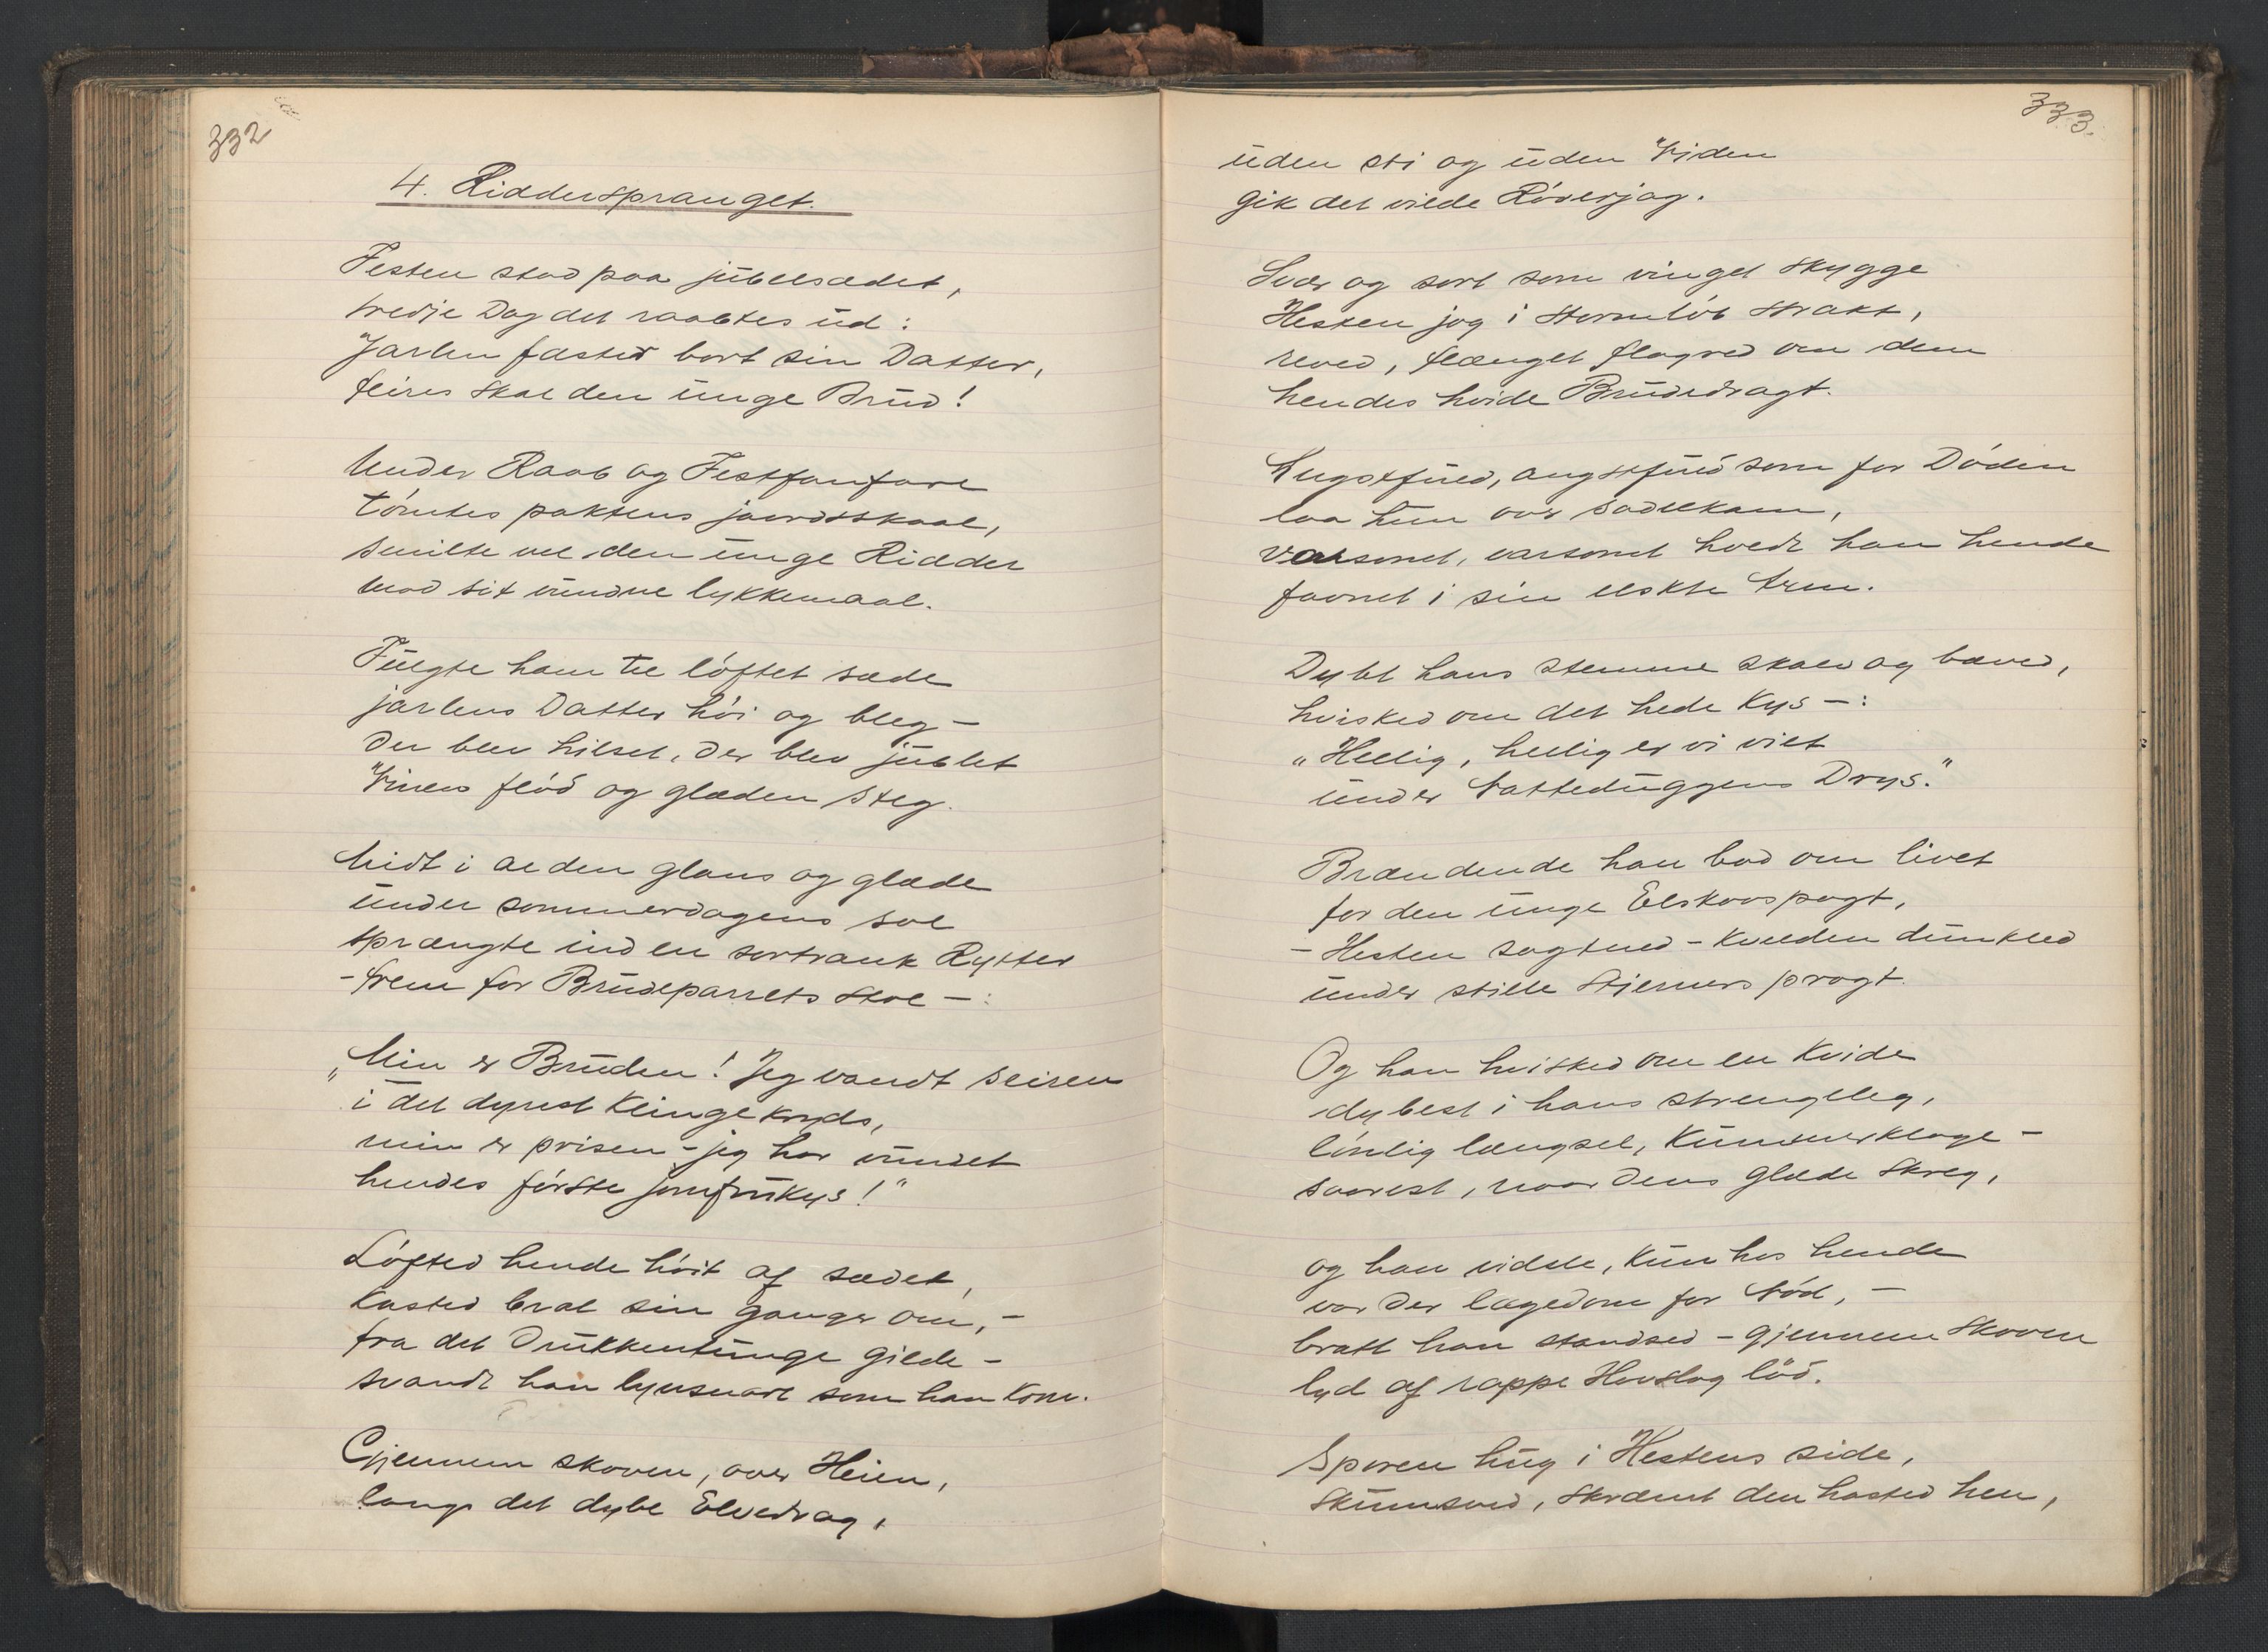 332
4. Ridderspranget.
Festen stod paa jubelsædet,
tredje Dag det raabtes ud:
Jarlen fæsted bort sin Datter,
feires skal den unge Brud!
Under Raab og Festfanfare
tömtes paktens jaordsskaal,
smilte vel den unge Ridder
mod sit vundne lykkemaal.
Fulgte ham til löftet sæde
jarlens Datter höi og bleg –
Der blev hilset, der blev jublet
Vinen flöd og glæden steg.
Midt i al den glans og glæde
under sommerdagens sol
sprængte ind en sortrank Rytter
– frem for Brudeparrets Stol –:
„Min er Bruden! Jeg vandt seiren
i det dyrest Klingekryds,
min er prisen – jeg har vundet
hendes förste jomfrukys!"
Löfted hende höit af sædet,
Kasted brat sin ganger om, –
fra det Drukkentunge gilde –
svandt han lynsnart som han Kom.
Gjennem skoven, over Heien,
langs det dybe Elvedrag,
333.
uden sti og uden Viden
gik det vilde Röverjag.
Svær og sort som vinget skygge
Hesten jog i Stormlöb strakt,
reved, flænget flagred om dem
hendes hvide Brudedragt.
Angstfuld, angstfuld som for Döden
laa hun over sadelkam,
varsomt, varsomt hvedt han hende
favnet i sin elskte Arm.
Dybt hans stemme skalv og bæved,
hvisked om det hede Kys –:
„Hellig, hellig er vi viet
under Natteduggens Drys."
Brændende han bad om livet
for den unge Elskovspagt,
– Hesten sagtned – Kvelden dunkled
under stille Stjerners pragt.
Og han hvisked om en Kvide
dybest i hans strengeleg,
lönlig længsel, Kummerklage –
saarest, naar dens glæde skreg,
og han vidste, Kun hos hende
var der lægedom for Nöd, –
bratt han standsed – gjennem Skoven
lyd af rappe Hovslag löd.
Sporen hug i Hestens side,
Skumsved, skræmt den hasted hen,